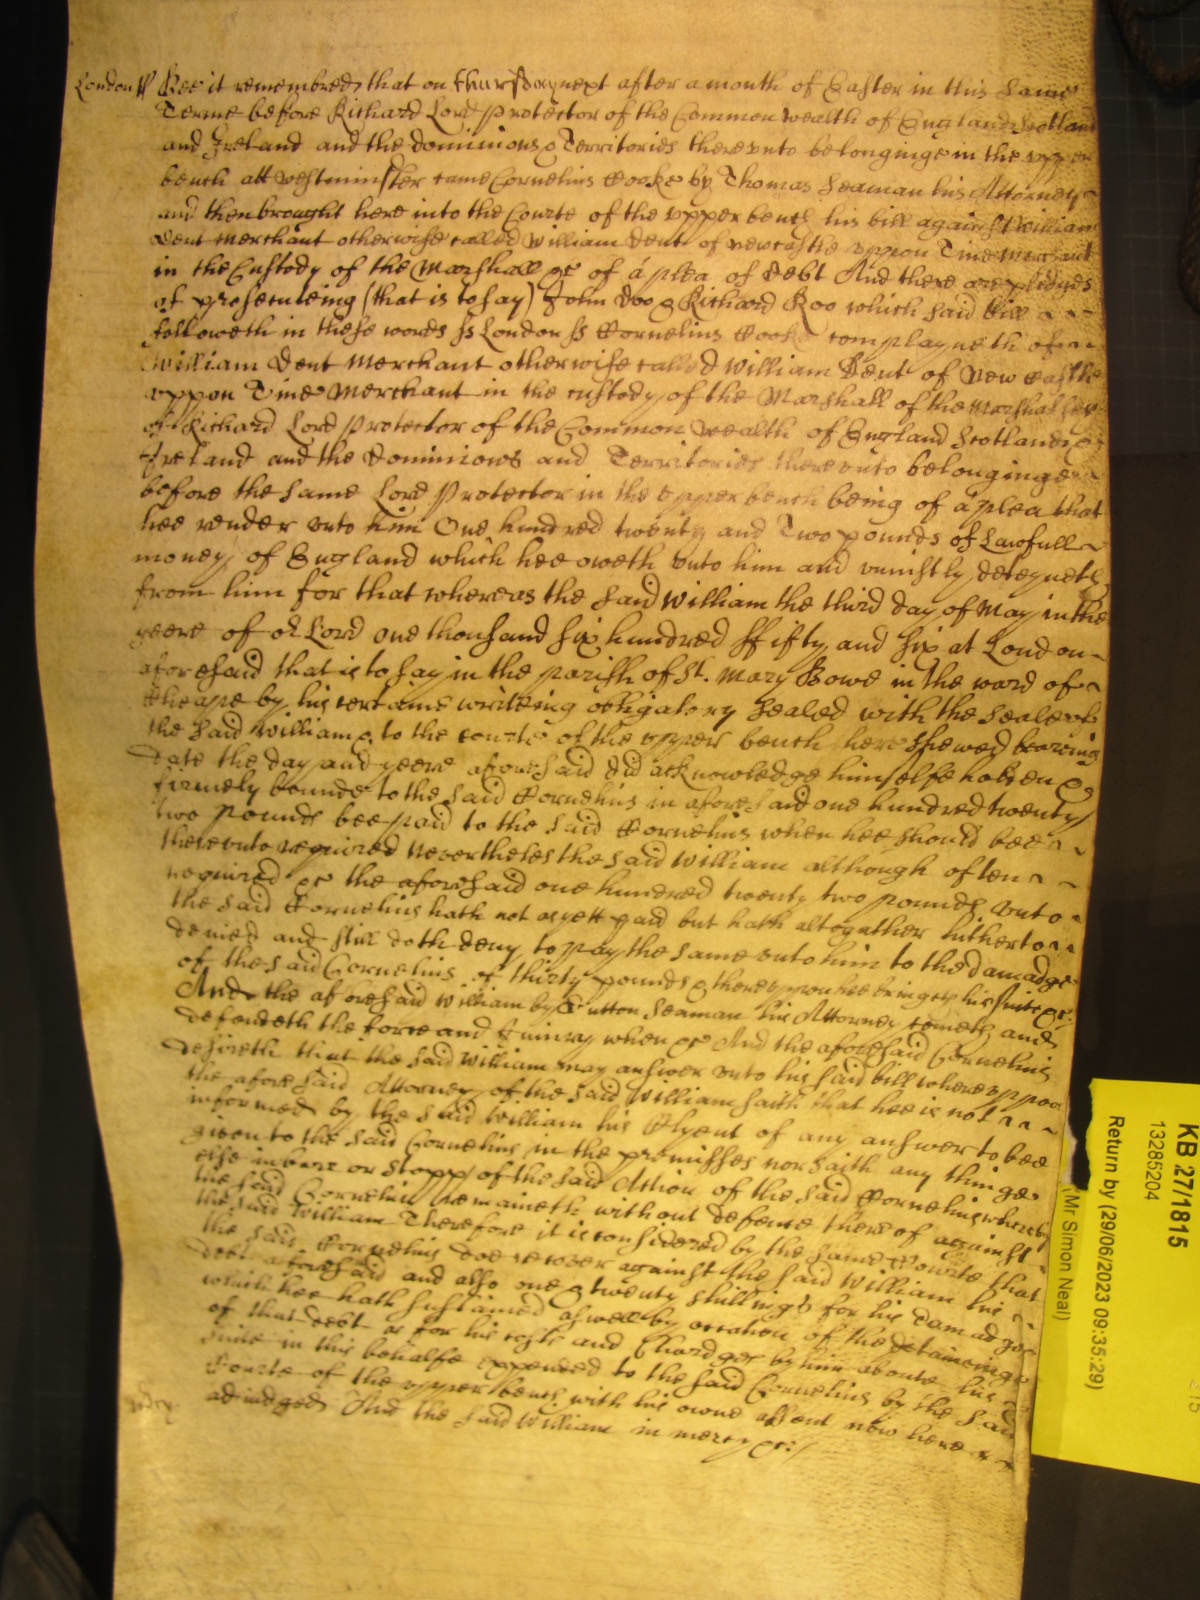 London ss Bee it remembred that on thursday next after a month of Easter in this same
Terme before Richard Lord Protector of the Common wealth of England Scotland
and Ireland and the dominions & Territories therevnto belonginge in the vpper
bench att Westminster came Cornelius Cooke by Thomas Seaman his Attorney
and then brought here into the Courte of the vpper bench his bill against William
Dent Merchant otherwise called William Dent of Newcastle vppon Tine Merchant
in the Custody of the Marshall &c of a plea of Debt And there are pledges
of prosecuteing (that is to say) John Doo & Richard Roo which said bill
followeth in these words ss London ss Cornelius Cooke complayneth of
William Dent Merchant otherwise called William Dent of New castle
vppon Tine Merchant in the custody of the Marshall of the Marshalsey
of Richard Lord Protector of the Common Wealth of England Scotland &
Ireland and the Dominions and Territories therevnto belonginge
before the same Lord Protector in the vpper bench being of a plea that
hee render vnto him One hundred twenty and Two pounds of Lawfull
money of England which hee oweth vnto him and vniustly deteyneth
from him for that whereas the said William the third day of May in the
yeere of or Lord one thousand six hundred ffifty and six at London
aforesaid that is to say in the parish of St. Mary Bowe in the ward of
Cheape by his certaine writeing obligatory Sealed with the seale of
the said William & to the courte of the vpper bench here shewed beareing
date the day and yeere aforesaid did acknowledge himselfe holden &
firmely bounde to the said Cornelius in aforesaid one hundred twenty
two pounds bee paid to the said Cornelius when hee should bee
therevnto required Neverthelesse the said William although often
required &c the aforesaid one hundred twenty two pounds vnto
the said Cornelius hath not as yett paid but hath altogather hitherto
denied and still doth deny to pay the same vnto him to the damadge
of the said Cornelius of thirty pounds & therevppon hee bringeth his suite &c.
And the aforesaid William by Sutton Seaman his Attorney cometh and
defendeth the force and Iniury when &c And the aforesaid Cornelius
desireth that the said William may answer vnto his said bill wherevppon
the aforesaid Attorney of the said William saith that hee is not
informed by the said William his Clyent of any answer to bee
given to the said Cornelius in the premisses nor saith any thinge
else in barr or stopp of the said Action of the said Cornelius whereby
the said Cornelius remaineth without defence thereof against
the said William Therefore it is considered by the same Courte that
the said Cornelius doe recover against the said William his
debt aforesaid and also one & twenty shillings for his damadges
which hee hath sustained aswell by occation of the detaineinge
of that debt as for his costs and Chardges by him aboute his
suite in this behalfe expended to the said Cornelius by the said
Courte of the vpper bench with his owne assent now here
adiudged And the said William in mercy &c./
KB 27/1815
13285204
Return by (29/06/2023 09:35:29)
(Mr Simon Neal)